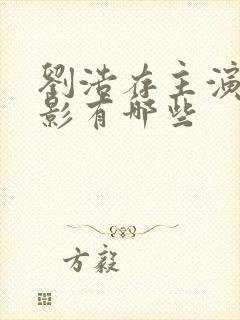 劉浩存主演
影有哪些
方毅